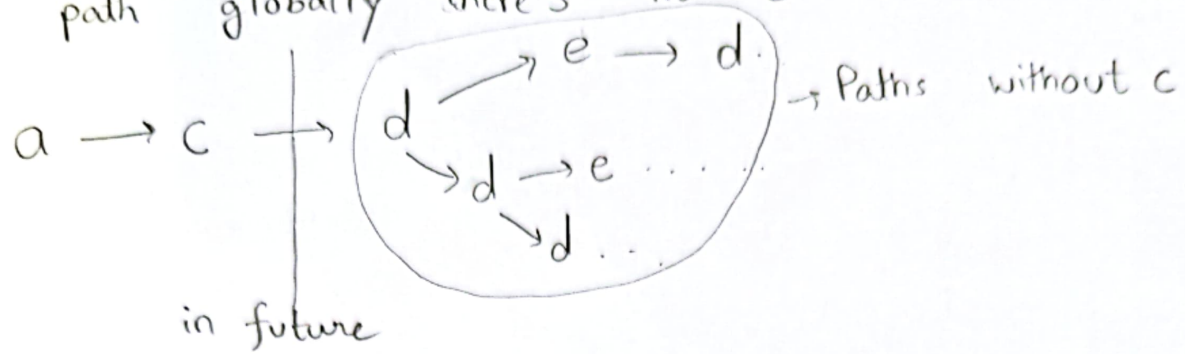 path globally there's
e → d.
→ Paths without c
a → c → d
d → e . . . . .
d . . .
in future